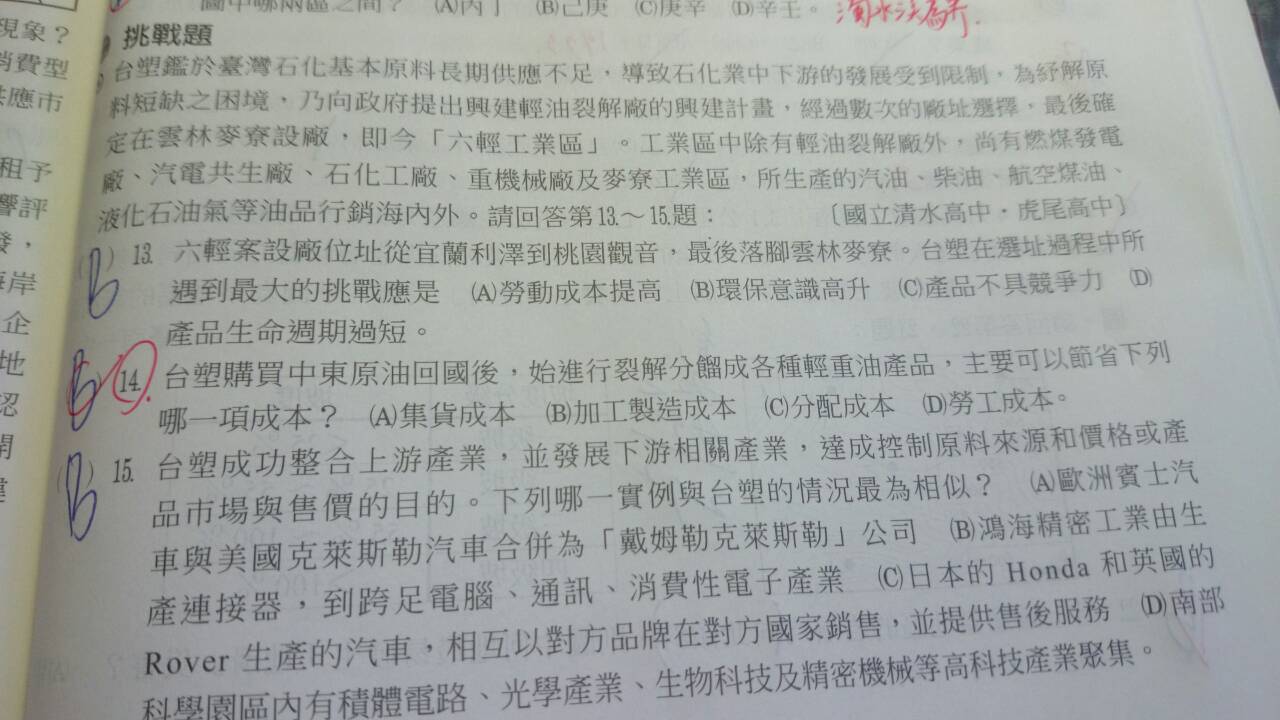 圖中哪兩區之間？ (A)丙丁 (B)己庚 (C)庚辛 (D)辛壬。 濁水溪為界.
挑戰題
台塑鑑於臺灣石化基本原料長期供應不足，導致石化業中下游的發展受到限制，為紓解原
料短缺之困境，乃向政府提出興建輕油裂解廠的興建計畫，經過數次的廠址選擇，最後確
定在雲林麥寮設廠，即今「六輕工業區」。工業區中除有輕油裂解廠外，尚有燃煤發電
廠、汽電共生廠、石化工廠、重機械廠及麥寮工業區，所生產的汽油、柴油、航空煤油、
液化石油氣等油品行銷海內外。請回答第13.～15.題： 〔國立清水高中・虎尾高中〕
(B) 13. 六輕案設廠位址從宜蘭利澤到桃園觀音，最後落腳雲林麥寮。台塑在選址過程中所
遇到最大的挑戰應是 (A)勞動成本提高 (B)環保意識高升 (C)產品不具競爭力 (D)
產品生命週期過短。
14. 台塑購買中東原油回國後，始進行裂解分餾成各種輕重油產品，主要可以節省下列
哪一項成本？ (A)集貨成本 (B)加工製造成本 (C)分配成本 (D)勞工成本。
(B) 15. 台塑成功整合上游產業，並發展下游相關產業，達成控制原料來源和價格或產
品市場與售價的目的。下列哪一實例與台塑的情況最為相似？ (A)歐洲賓士汽
車與美國克萊斯勒汽車合併為「戴姆勒克萊斯勒」公司 (B)鴻海精密工業由生
產連接器，到跨足電腦、通訊、消費性電子產業 (C)日本的 Honda 和英國的
Rover 生產的汽車，相互以對方品牌在對方國家銷售，並提供售後服務 (D)南部
科學園區內有積體電路、光學產業、生物科技及精密機械等高科技產業聚集。
現象？
消費型
供應市
租予
響評
發，
海岸
企
地
認
開